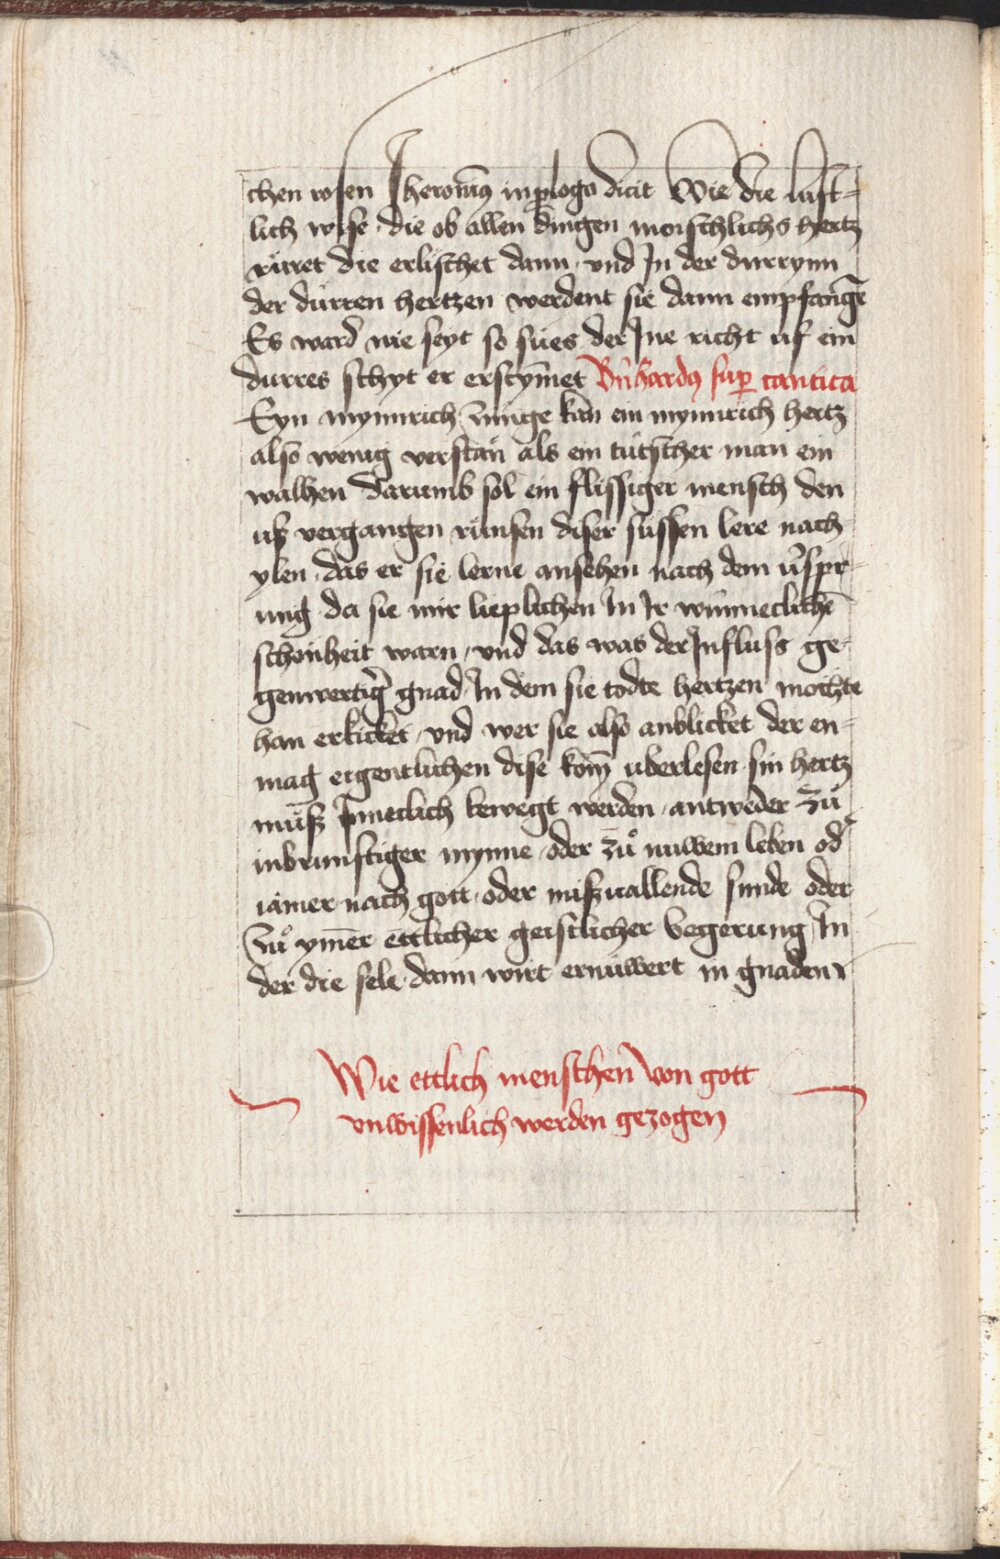 chen rosen Jheronimꝰ in ꝓlogo dicit Wie die lust-
lich wise · die ob allen dingen monschlichs hertz
rüret die erlischet dann · vnd Jn der durrynn
der dürren hertzen werdent sie dann empfangē
Es ward nie seyt so sües der Jne richt uf ein
durres schyt er erstym̄et Bn̄hardꝰ suꝑ cantica
Eyn mynnrich zunge kan ein mynnrich hertz
also wenig verstan als ein tütscher man ein
walhen Darumb sol ein flissiger mensch den
uß vergangen runsen diser sussen lere nach
ylen · das er sie lerne ansehen nach dem vrspr-
ung da sie mir lieplichen Jn Jr wunneclichē
schönheit warn · vnd das was der Jnfluss ge-
genwertigr̄ gnad Jn dem sie todte hertzen möchte
han erkicket · vnd wer sie also anblicket der en-
mag eigentlichen dise kom̄ uberlesen sin hertz
muß Jnneclich bewegt werden · antweder zů
inbrunstiger mynne · oder zů nuwem leben od̄
iamer nach gott · oder mißuallende sunde oder
zů ym̄er ettlicher geistlicher begerung Jn
der die sele · dann wirt ernuwert in gnaden
Wie ettlich menschen von gott
vnwissenlich werden gezogen